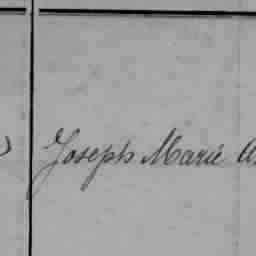 Joseph Marié